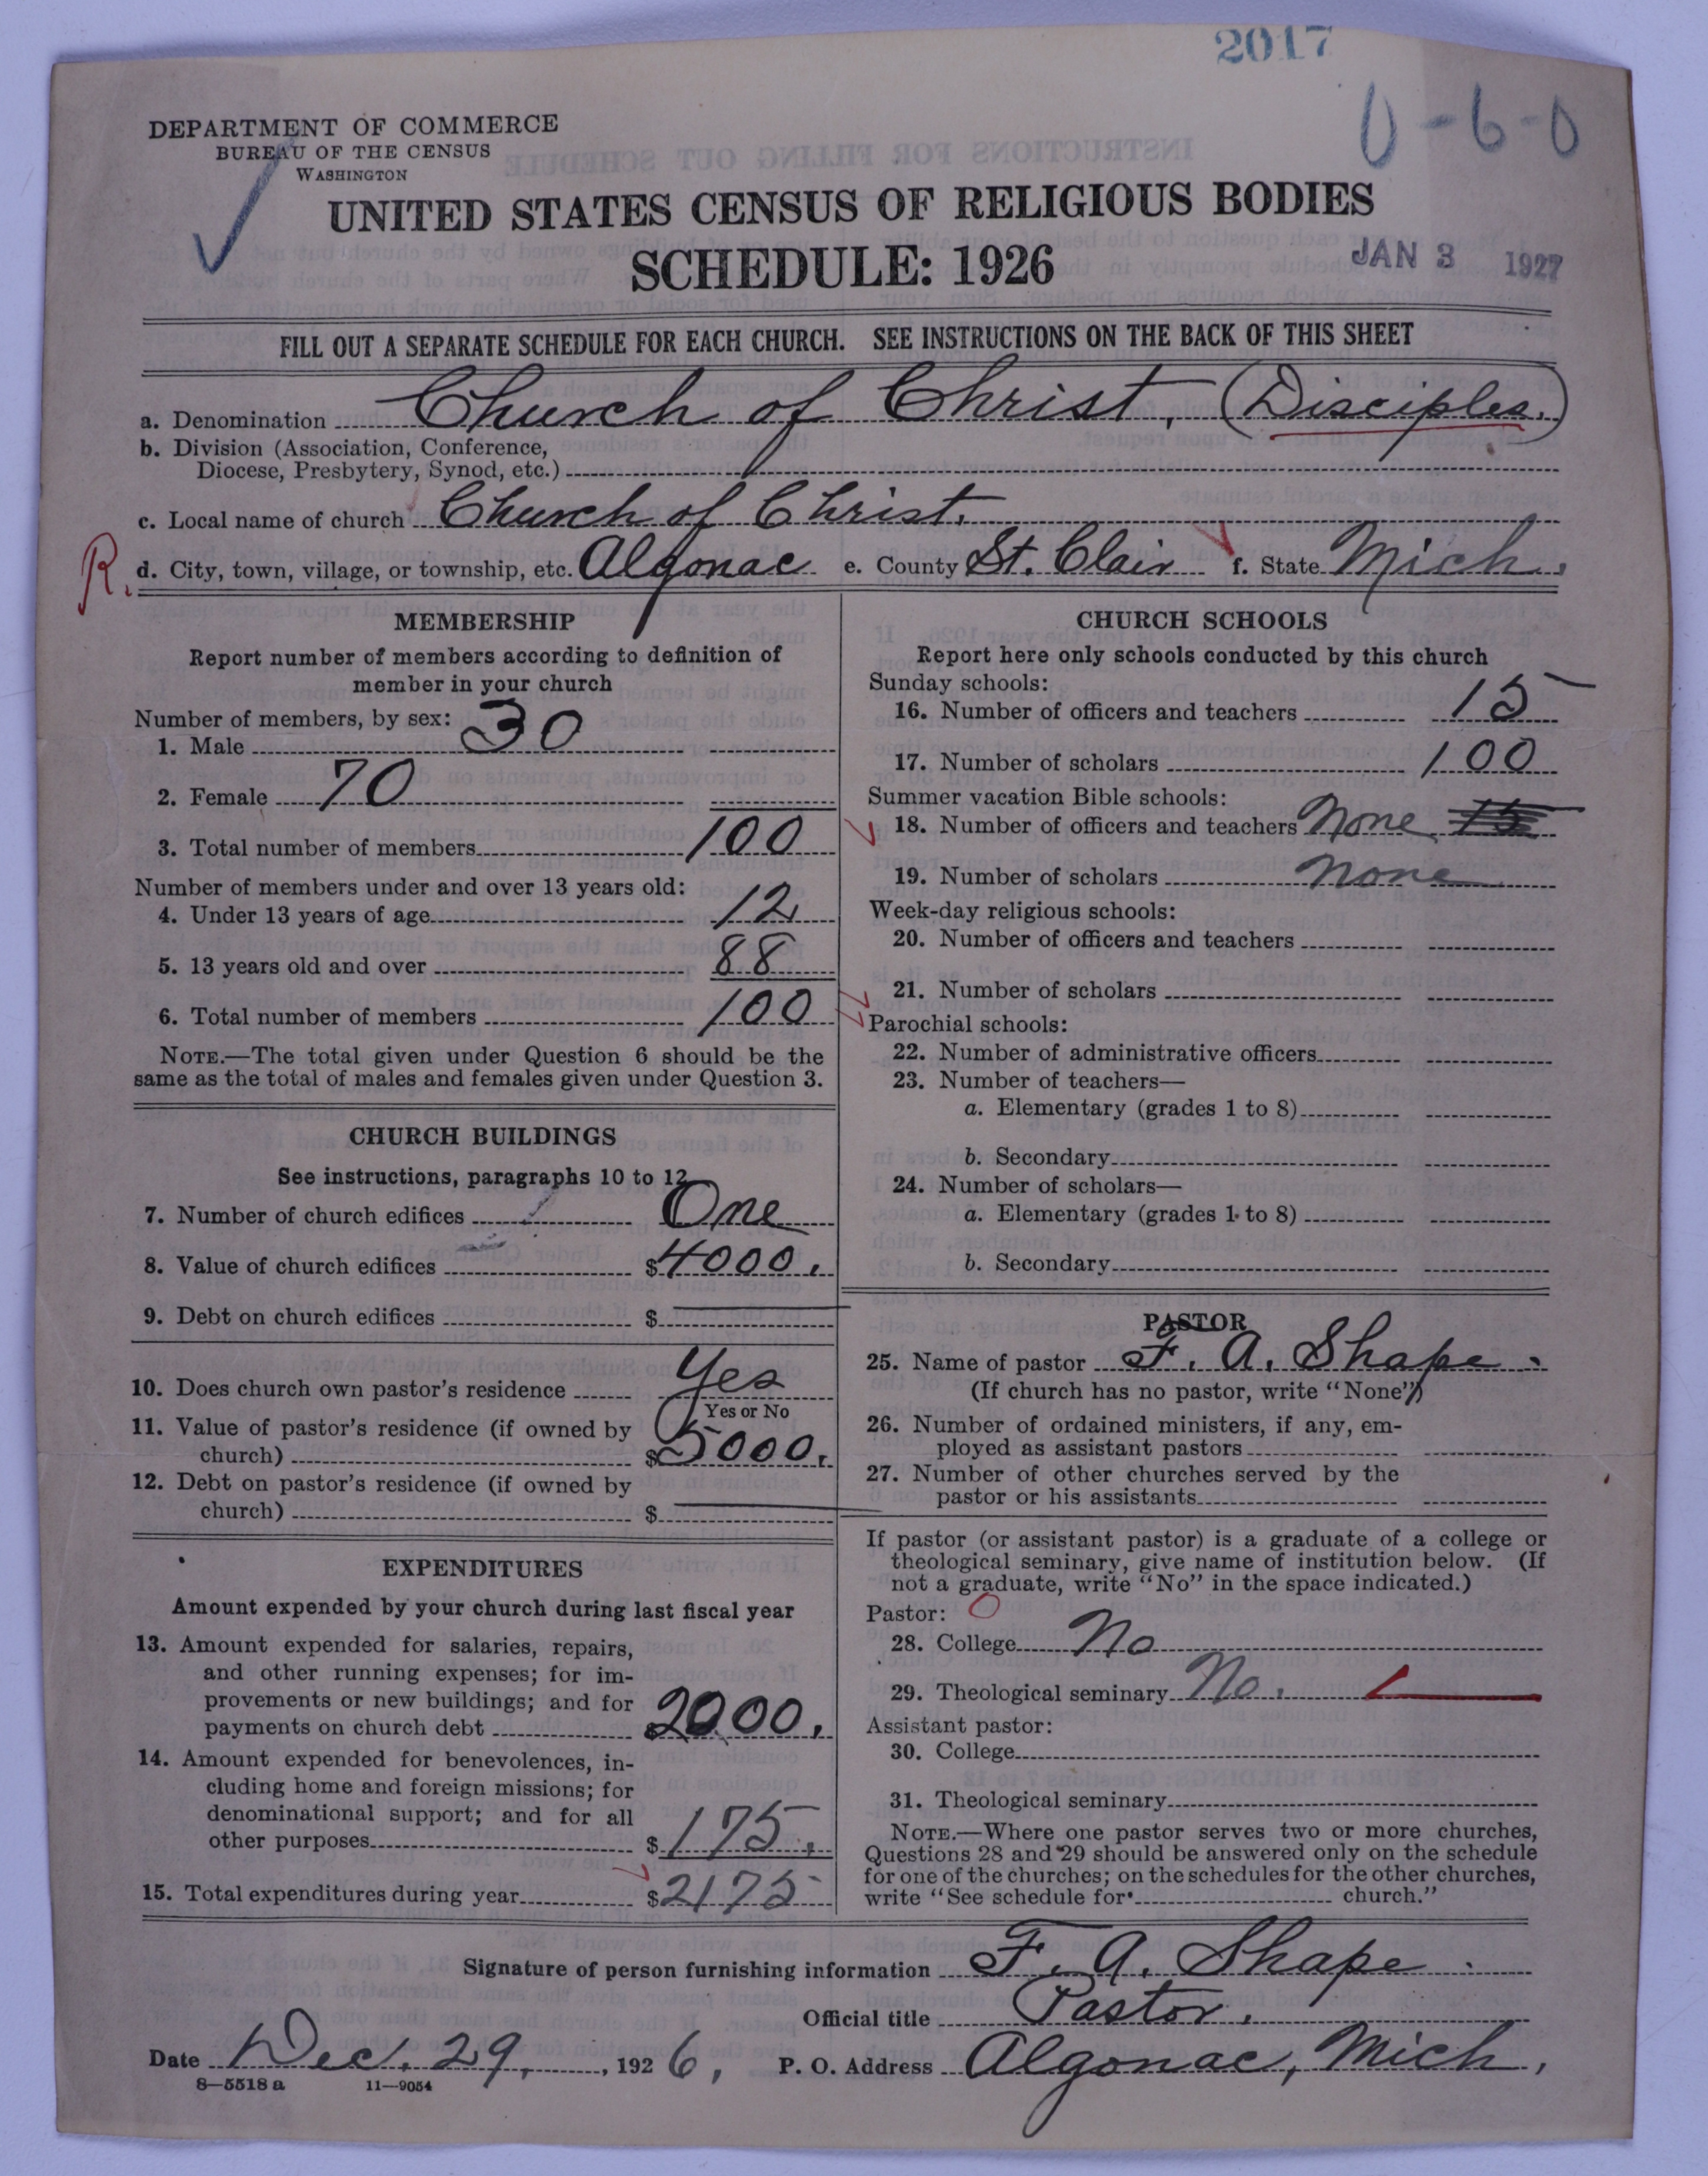 2017
0-6-0
DEPARTMENT OF COMMERCE
BUREAU OF THE CENSUS
WASHINGTON
UNITED STATES CENSUS OF RELIGIOUS BODIES
SCHEDULE: 1926
JAN 3 1927
FILL OUT A SEPARATE SCHEDULE FOR EACH CHURCH. SEE INSTRUCTIONS ON THE BACK OF THIS SHEET
a. Denomination Church of Christ, (Disciples.)
b. Division (Association, Conference,
Diocese, Presbytery, Synod, etc.)
c. Local name of church Church of Christ.
R. d. City, town, village, or township, etc. Algonac e. County St. Clair f. State Mich.
MEMBERSHIP
Report number of members according to definition of
member in your church
Number of members, by sex:
1. Male 30
2. Female 70
3. Total number of members 100
Number of members under and over 13 years old:
4. Under 13 years of age 12
5. 13 years old and over 88
6. Total number of members 100
NOTE.—The total given under Question 6 should be the
same as the total of males and females given under Question 3.
CHURCH BUILDINGS
See instructions, paragraphs 10 to 12
7. Number of church edifices One
8. Value of church edifices $4000.
9. Debt on church edifices $
10. Does church own pastor's residence Yes
Yes or No
11. Value of pastor's residence (if owned by
church) $5000.
12. Debt on pastor's residence (if owned by
church) $
EXPENDITURES
Amount expended by your church during last fiscal year
13. Amount expended for salaries, repairs,
and other running expenses; for im-
provements or new buildings; and for
payments on church debt $2000.
14. Amount expended for benevolences, in-
cluding home and foreign missions; for
denominational support; and for all
other purposes $175.
15. Total expenditures during year $2175
CHURCH SCHOOLS
Report here only schools conducted by this church
Sunday schools:
16. Number of officers and teachers 15
17. Number of scholars 100
Summer vacation Bible schools:
18. Number of officers and teachers None 15
19. Number of scholars None
Week-day religious schools:
20. Number of officers and teachers
21. Number of scholars
Parochial schools:
22. Number of administrative officers
23. Number of teachers—
a. Elementary (grades 1 to 8)
b. Secondary
24. Number of scholars—
a. Elementary (grades 1 to 8)
b. Secondary
PASTOR
25. Name of pastor F. A. Shape.
(If church has no pastor, write "None")
26. Number of ordained ministers, if any, em-
ployed as assistant pastors
27. Number of other churches served by the
pastor or his assistants
If pastor (or assistant pastor) is a graduate of a college or
theological seminary, give name of institution below. (If
not a graduate, write "No" in the space indicated.)
Pastor: 0
28. College No
29. Theological seminary No.
Assistant pastor:
30. College
31. Theological seminary
NOTE.—Where one pastor serves two or more churches,
Questions 28 and 29 should be answered only on the schedule
for one of the churches; on the schedules for the other churches,
write "See schedule for church."
Signature of person furnishing information F. A. Shape
Official title Pastor.
Date Dec. 29, 1926, P. O. Address Algonac, Mich.
8—5518 a 11—9054